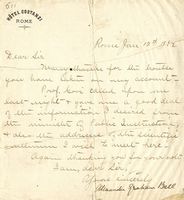 HÔTEL COSTANZI
ROME
Rome Jan 12th 188
Dear Sir
Many thanks for the trouble
you have taken on my account.
Prof. called upon me
last night & gave me a good deal
of the information I desired from
the minister of Public Instruction
& also the addresses of the scientific
gentlemen I wish to meet here.
Again thanking you for your
I am, dear Sir,
Yours sincerely
Alexander Graham Bell